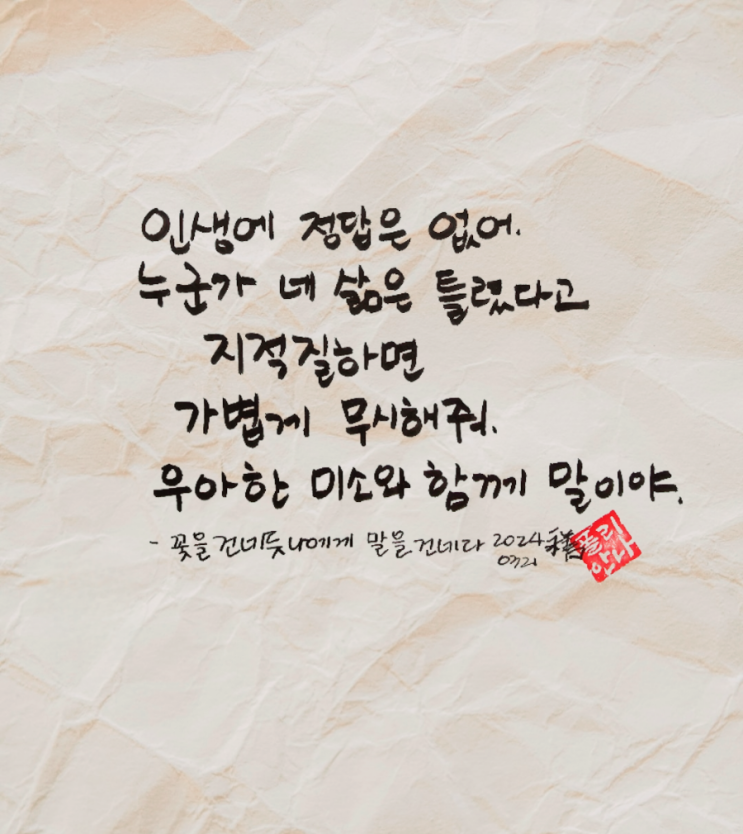 인생에 정답은 없어.
누군가 네 삶은 틀렸다고
지적질하면
가볍게 무시해줘.
우아한 미소와 함께 말이야.
- 꽃을 건네듯 나에게 말을 건네다 2024
0321
폴리
안나